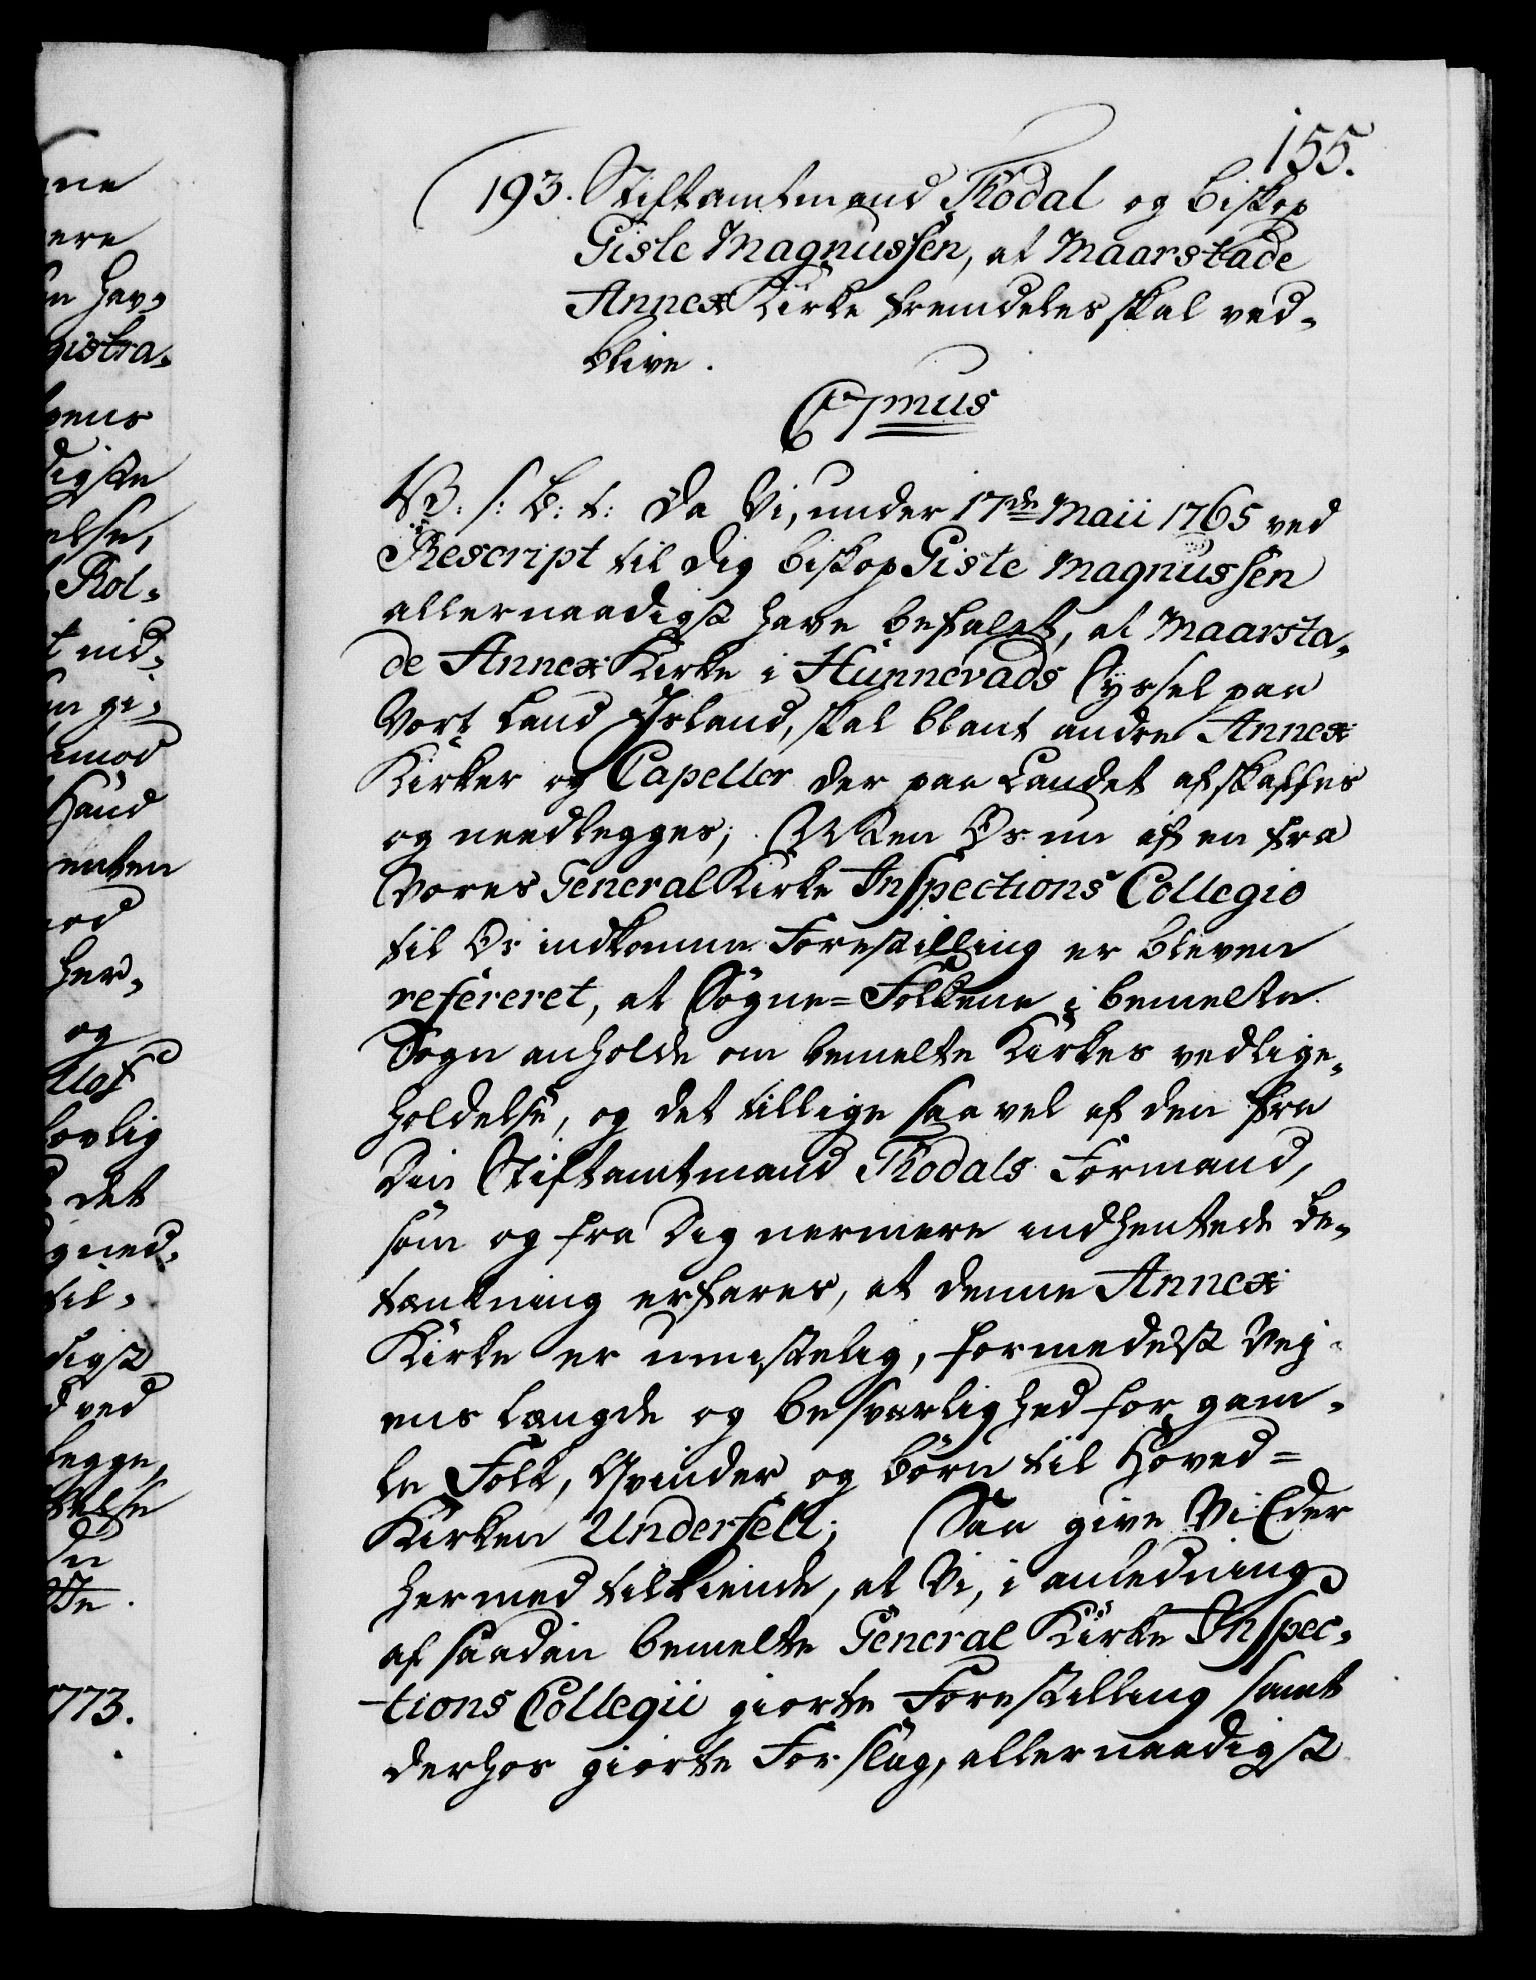 155.
193. Stiftamtmand Thodal og Biskop
Gisle Magnussen, at Maarstade
Annex Kirke fremdeles skal ved-
blive.
C7mus
V. s: B: t: Da Vi, under 17de Maii 1765 ved
Rescript til dig Biskop Gisle Magnussen
allernaadigst have befalet, at Maarsta-
de Annex Kirke i Hunnevads Syssel paa
Vort Land Island, skal blant andre Annex
Kirker og Capeller der paa Landet afskaffes
og needlegges; Men Os nu af en fra
Vores General Kirke Inspections Collegio
til Os indkommen Forestilling er bleven
refereret, at Sogne=Folkene i bemelte
Sogn anholde om bemelte Kirkes vedlige-
holdelse, og det tillige saavel af den fra
Din Stiftamtmand Thodals Formand,
som og fra Dig nermere indhentede be-
tænkning erfares, at denne Annex
Kirke er umistelig, formedelst Vej-
ens Længde og besværlighed for gam-
le Folk, Qvinder og Børn til Hoved=
Kirken Undersell; Saa give Vi Eder
hermed tilkiende, at Vi, i anledning
af saadan bemelte General Kirke Inspec-
tions Collegii giorte Forestilling samt
derhos giorte Forslag, allernaadigst
ne
ere
n hav-
gistra-
vens
digste
else,
Rol-
t nid-
n gi-
imod
Haand
enten
od
her-
og
Uof
lovlig
det
gned-
til-
digst
d ved
legge,
else
1773.